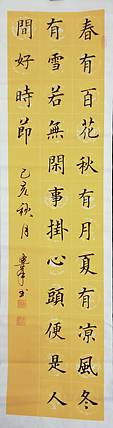 春有百花秋有月夏有凉風冬
有雪若無閑事掛心頭便是人
間好時節
己亥秋月